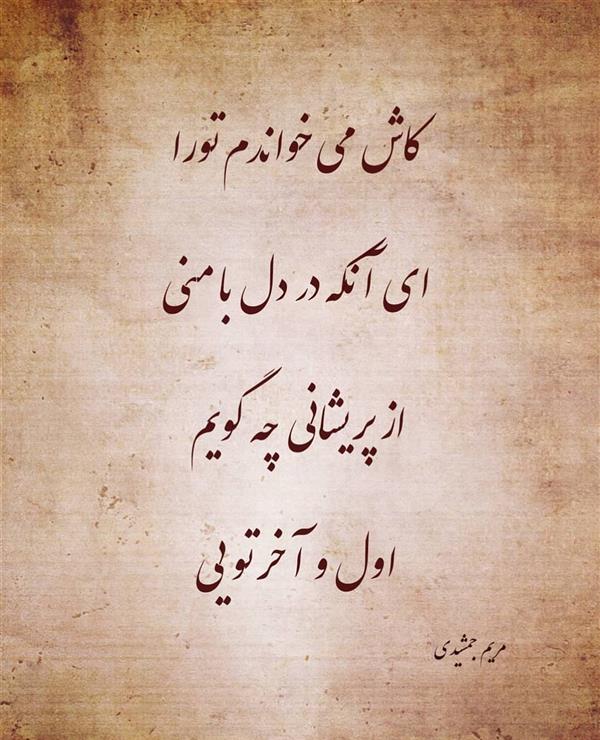 کاش می خواندم تورا
ای آنکه در دل بامنی
از پریشانی چه گویم
اول و آخر تویی
مریم جمشیدی